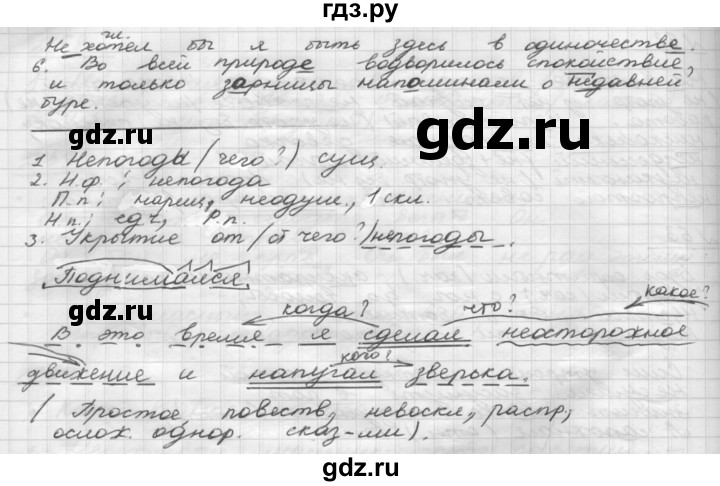 гдз.ру
гл.
Не хотел бы я быть здесь в одиночестве.
6. Во всей природе водворилось спокойствие,
и только зарницы напоминали о недавней
буре.
gdz.ru gdz.ru
1. Непогоды (чего?) сущ.
2. Н.ф.: непогода
П.п: нариц., неодуш., 1 скл.
Н.п.: ед.ч., Р.п.
3. Укрытие от (от чего?) непогоды.
Поднимался
gdz.ru gdz.ru
когда? что? какое?
В это время я сделал неосторожное
кого?
движение и напугал зверька.
(Простое, повеств., невоскл., распр.,
ослож. однор. сказ-ми).
gdz.ru gdz.ru